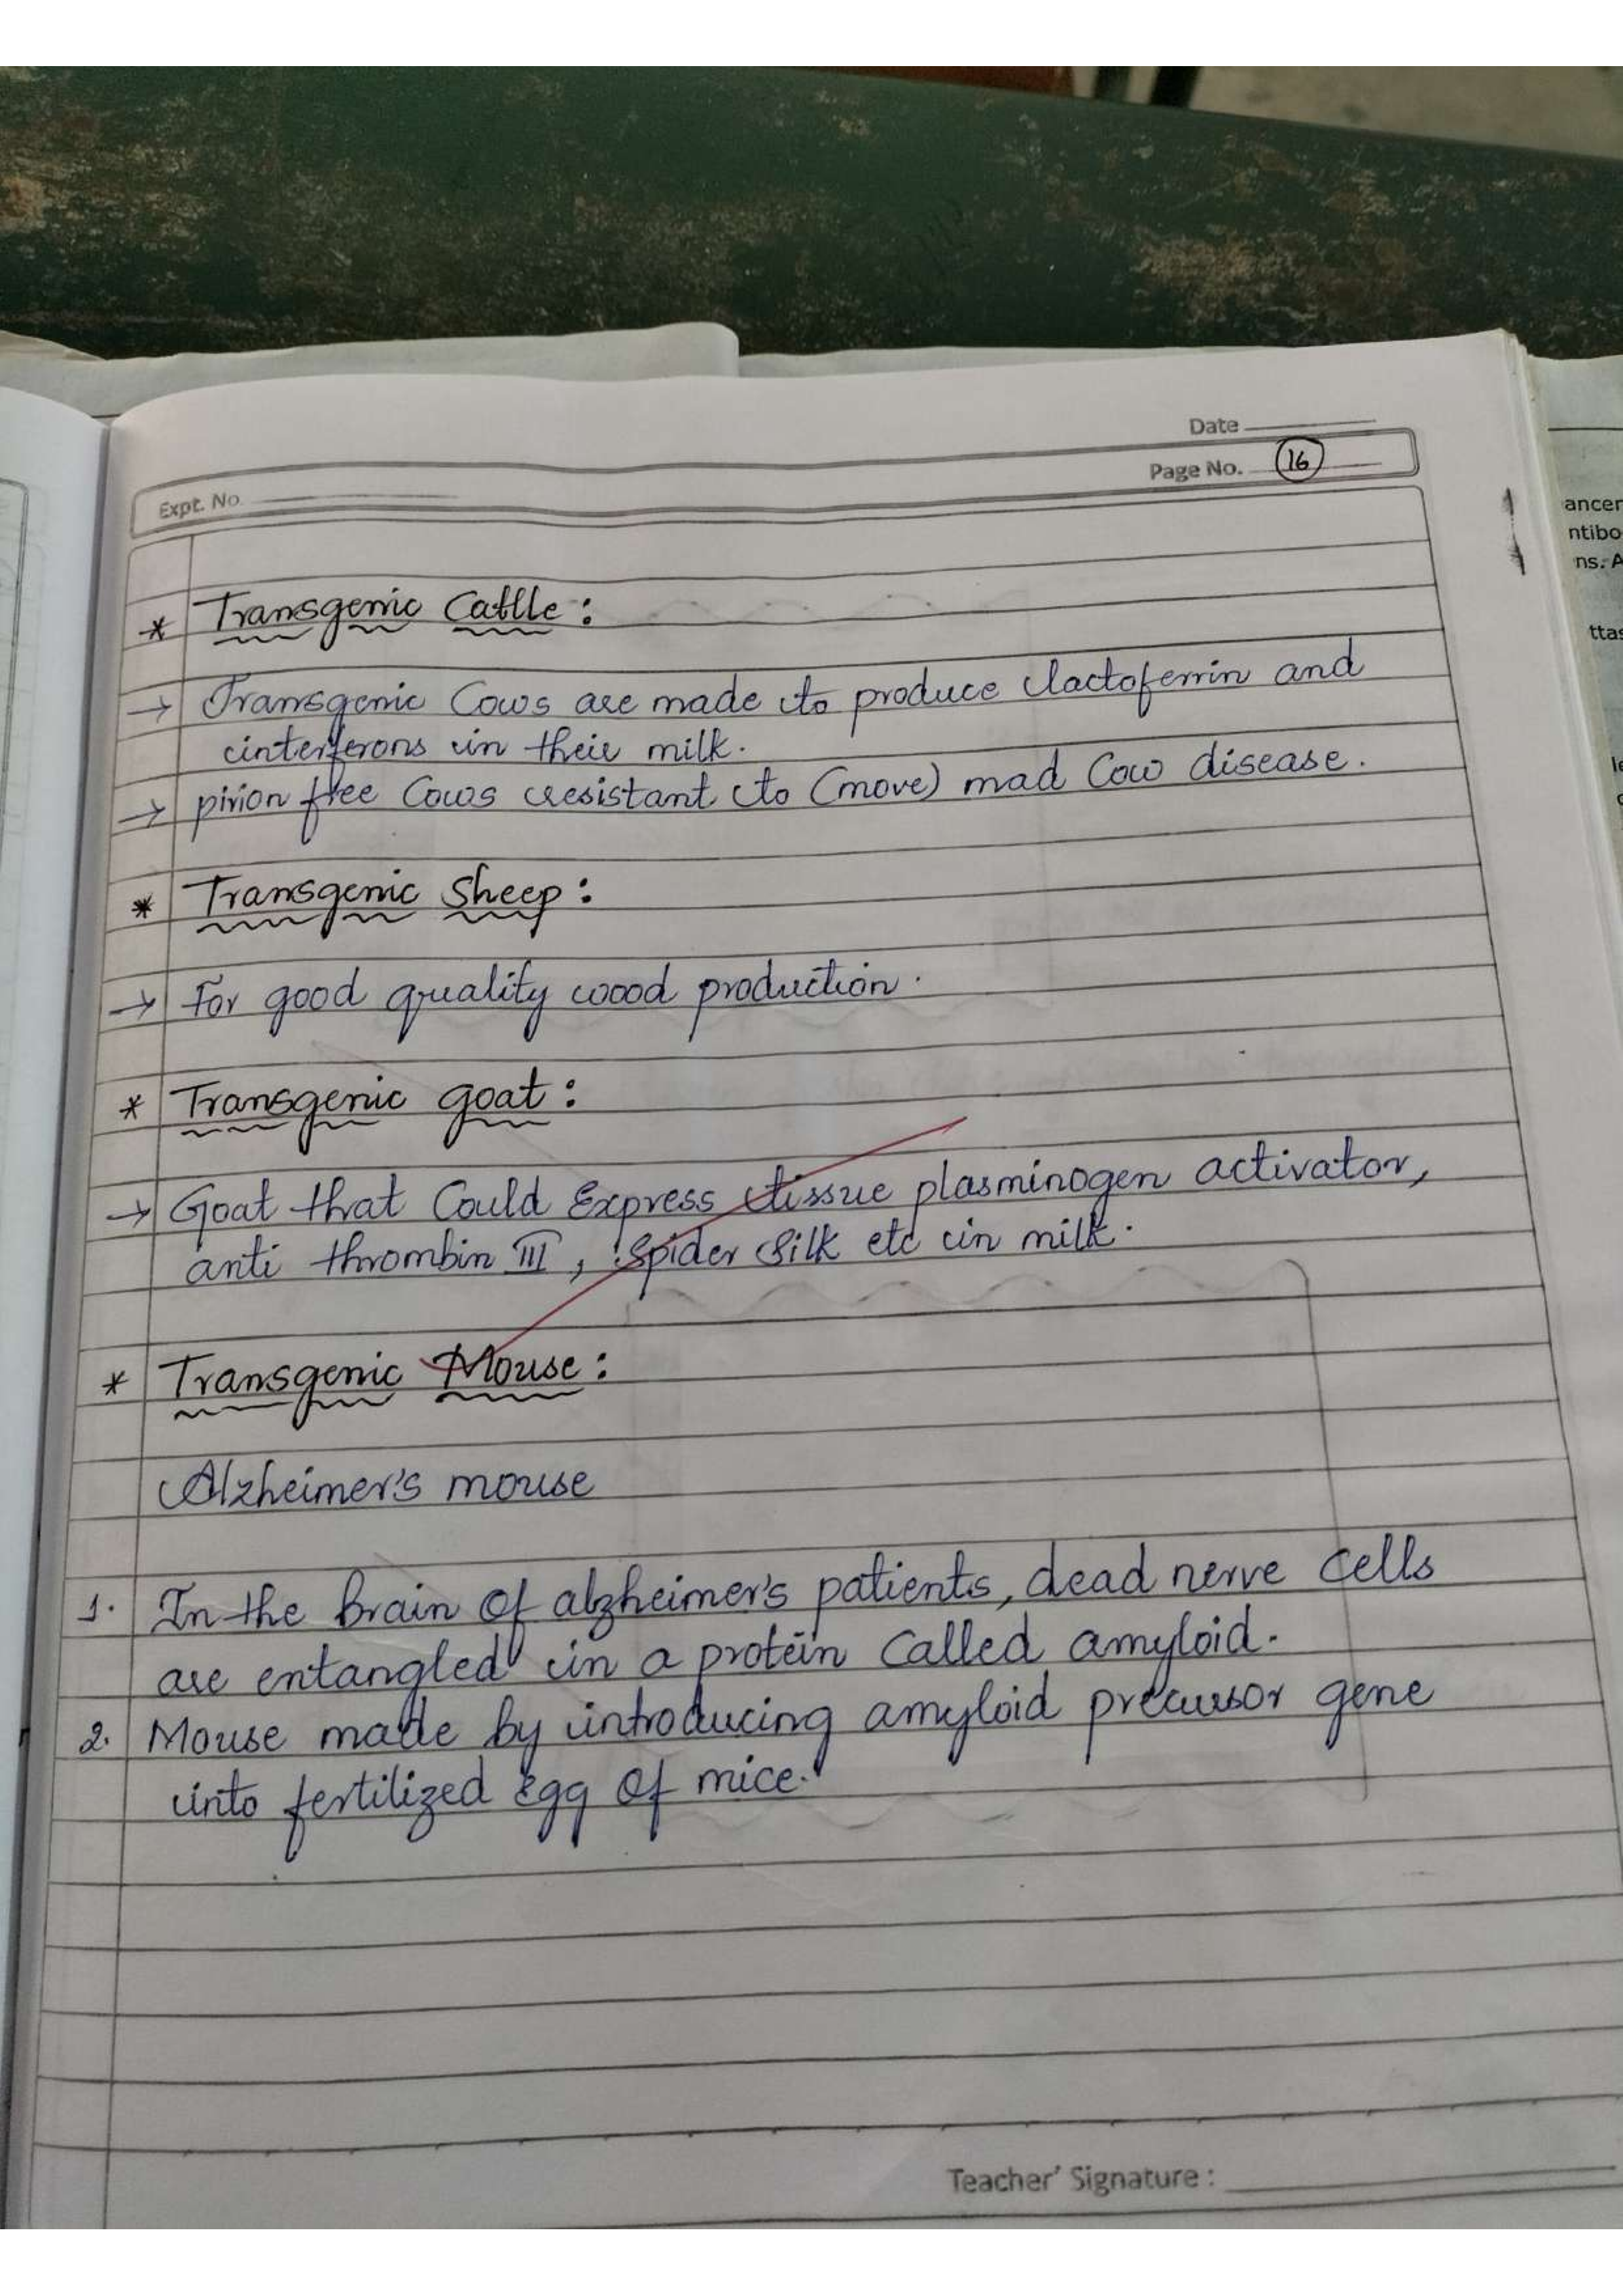 Date
Page No. 16
Expt. No.
* Transgenic Cattle :
→ Transgenic Cows are made to produce lactoferrin and
interferons in their milk.
→ pirion free Cows resistant to (move) mad Cow disease.
* Transgenic Sheep :
→ For good quality wood production.
* Transgenic goat :
→ Goat that Could Express tissue plasminogen activator,
anti thrombin III, Spider Silk etc in milk.
* Transgenic Mouse :
Alzheimer's mouse
1. In the Brain Of alzheimer's patients, dead nerve Cells
are entangled in a protein Called amyloid.
2. Mouse made by introducing amyloid precursor gene
into fertilized Egg Of mice.
Teacher' Signature :
ancer
ntibo
ns. A
ttas